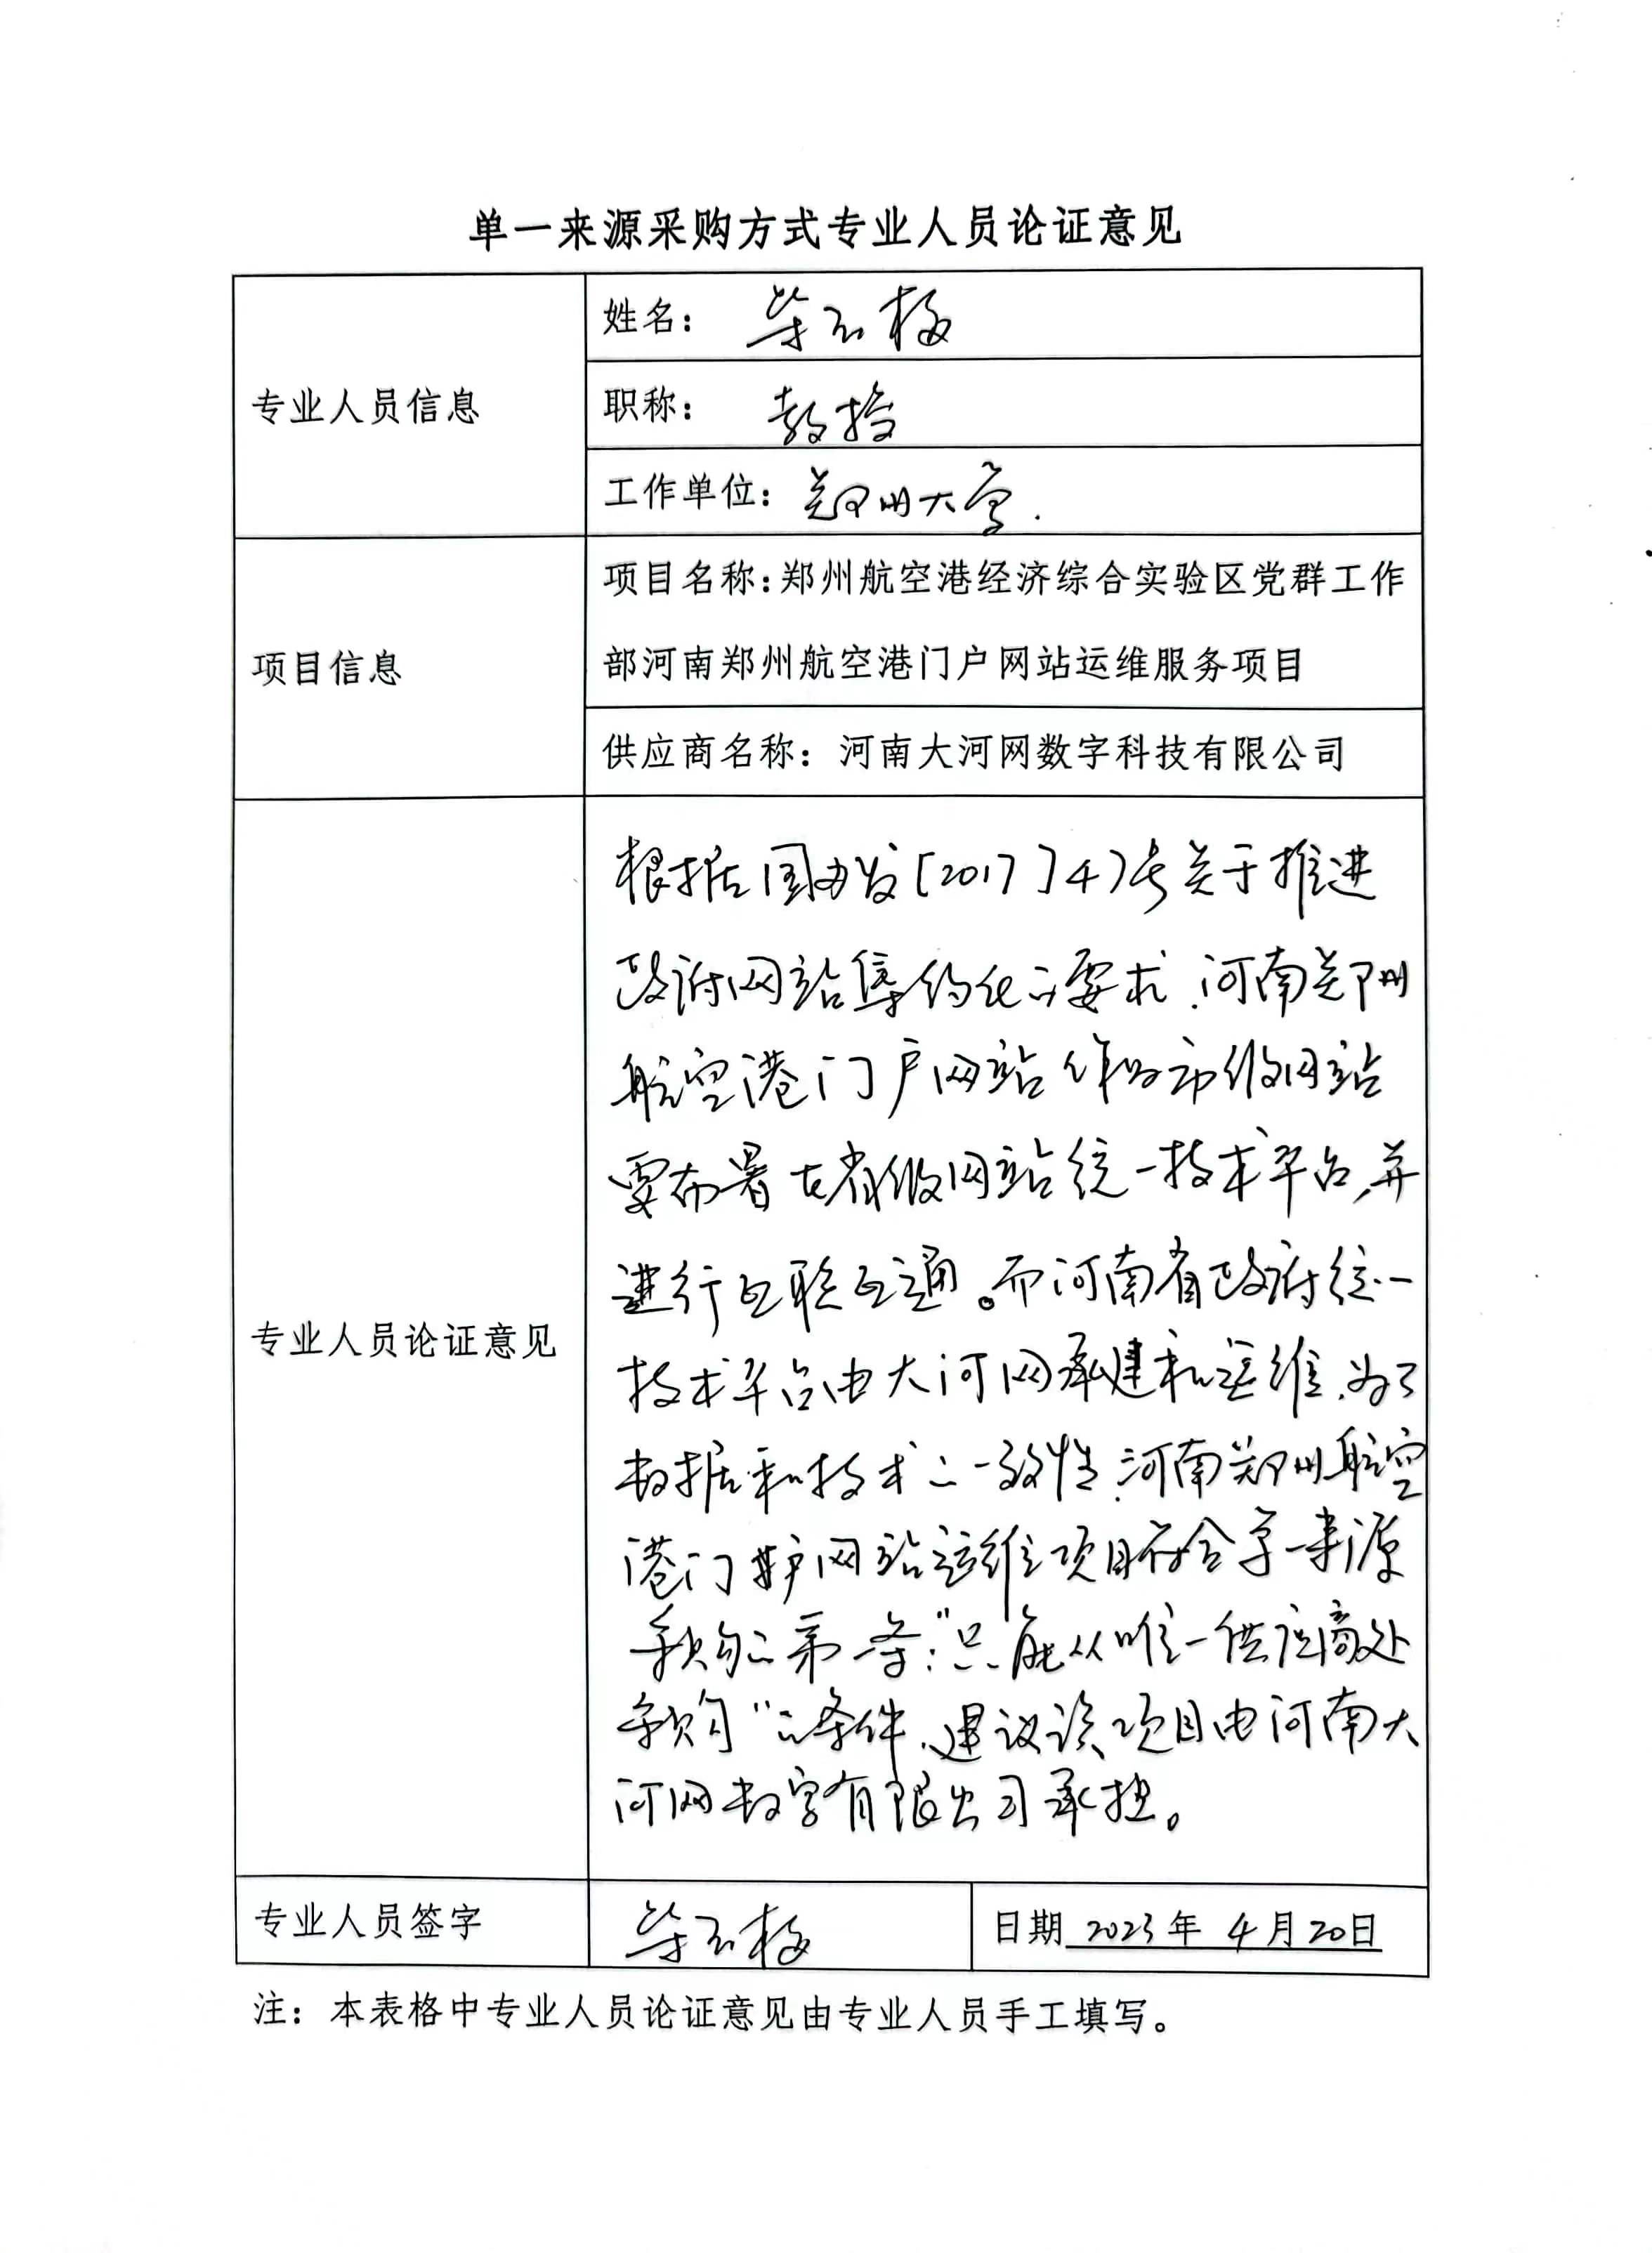 单一来源采购方式专业人员论证意见
专业人员信息
姓名： 柴玉梅
职称： 教授
工作单位： 郑州大学.
项目信息
项目名称：郑州航空港经济综合实验区党群工作
部河南郑州航空港门户网站运维服务项目
供应商名称： 河南大河网数字科技有限公司
专业人员论证意见
根据国办发[2017]47号关于推进
政府网站集约化的要求,河南郑州
航空港门户网站作为市级网站
要布署在省级网站统一技术平台,并
进行互联互通。而河南省政府统一
技术平台由大河网承建和运维,为了
数据和技术的一致性,河南郑州航空
港门户网站运维项目符合单一来源
采购的第一条:"只能从唯一供应商处
采购"的条件,建议该项目由河南大
河网数字有限公司承担。
专业人员签字
柴玉梅
日期 2023年 4月20日
注：本表格中专业人员论证意见由专业人员手工填写。